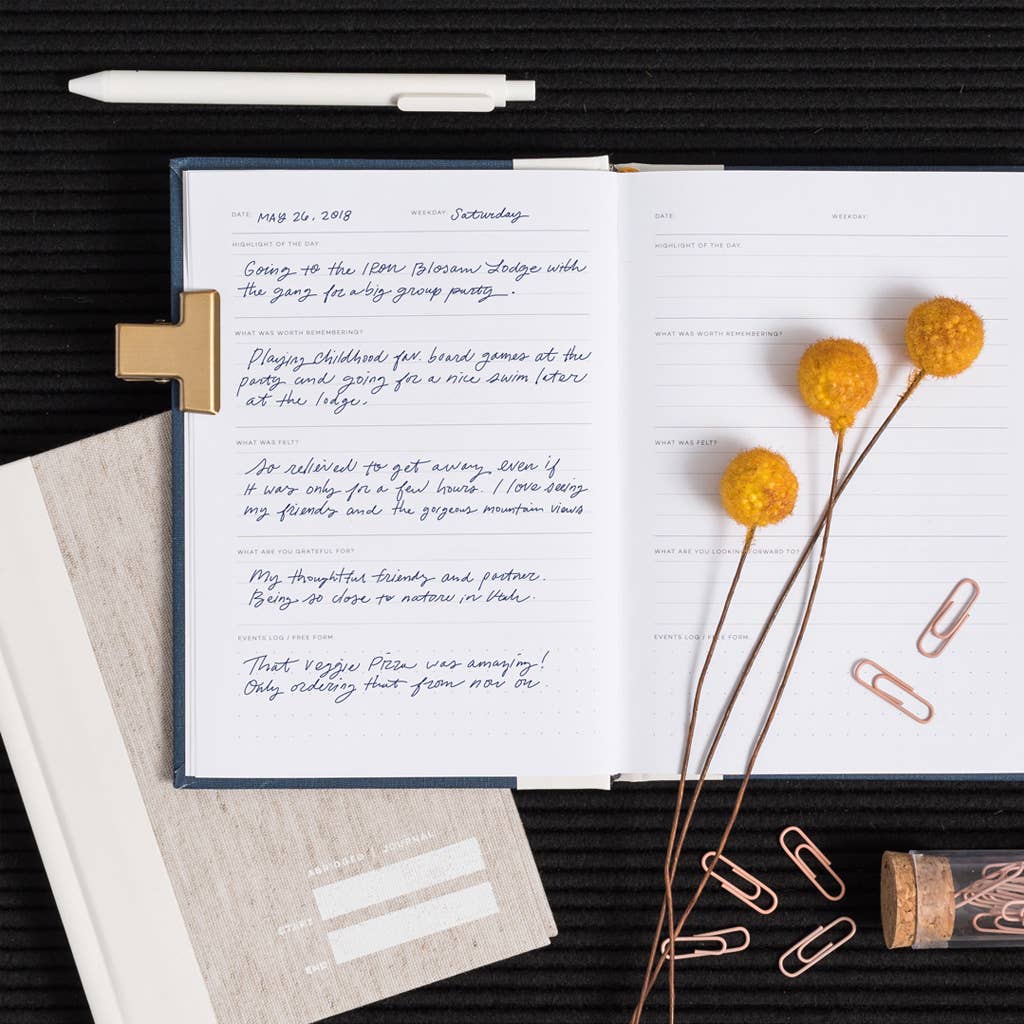 DATE: MAY 26, 2018 WEEKDAY: Saturday
HIGHLIGHT OF THE DAY:
Going to the Iron Blosam Lodge with
the gang for a big group party.
WHAT WAS WORTH REMEMBERING?
Playing childhood fav. board games at the
party and going for a nice swim later
at the lodge.
WHAT WAS FELT?
So relieved to get away even if
it was only for a few hours. I love seeing
my friends and the gorgeous mountain views
WHAT ARE YOU GRATEFUL FOR?
My thoughtful friends and partner.
Being so close to nature in Utah.
EVENTS LOG / FREE FORM
That veggie pizza was amazing!
Only ordering that from now on.
DATE: WEEKDAY:
HIGHLIGHT OF THE DAY:
WHAT WAS WORTH REMEMBERING?
WHAT WAS FELT?
WHAT ARE YOU LOOKING FORWARD TO?
EVENTS LOG / FREE FORM
ABRIDGED JOURNAL
START
END